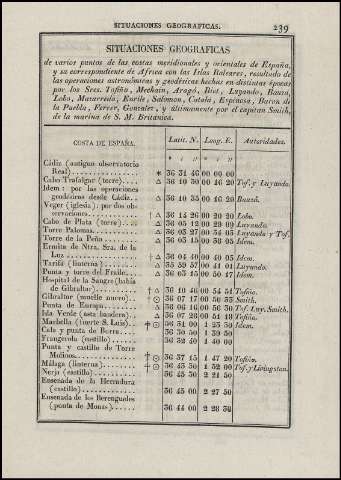 SITUACIONES GEOGRAFICAS. 239
SITUACIONES GEOGRAFICAS
de varios puntos de las costas meridionales y orientales de España,
y su correspondiente de Africa con las Islas Baleares, resultado de
las operaciones astronómicas y geodésicas hechas en distintas épocas
por los Sres. Tofiño, Mechain, Aragó, Biot, Luyando, Bauzá,
Lobo, Mazarredo, Enrile, Salomon, Catalá, Espinosa, Baron de
la Puebla, Ferrer, Gonzalez, y últimamente por el capitan Smith,
de la marina de S. M. Britanica.
COSTA DE ESPAÑA. Latit. N. Long. E. Autoridades.
° ′ ″ ° ′ ″
Cádiz (antiguo observatorio
Real) * 36 31 46 00 00 00
Cabo Trafalgar (torre) △ 36 10 50 00 16 20 Tof. y Luyando.
Idem: por las operaciones
geodésicas desde Cádiz △ 36 10 35 00 16 20 Bauzá.
Veger (iglesia): por dos ob-
servaciones † △ 36 14 26 00 20 20 Lobo.
Cabo de Plata (torre) △ 36 05 12 00 29 09 Luyando.
Torre Palomas △ 36 03 27 00 34 05 Luyando y Tof.
Torre de la Peña △ 36 03 15 00 38 05 Idem.
Ermita de Ntra. Sra. de la
Luz † △ 36 04 40 00 40 05 Idem.
Tarifa (linterna) △ 35 59 57 00 41 01 Luyando.
Punta y torre del Fraile △ 36 03 15 00 50 17 Idem.
Hospital de la Sangre (bahía
de Gibraltar) † △ 36 10 46 00 54 51 Tofiño.
Gibraltar (muelle nuevo) † ⊙ 36 07 17 00 56 33 Smith.
Punta de Europa △ 36 06 16 00 56 30 Tof. Luy. Smith.
Isla Verde (asta bandera) △ 36 07 28 00 51 18 Tofiño.
Marbella (fuerte S. Luis) † ⊙ 36 31 00 1 25 30 Idem.
Cala y punta de Burra 36 30 50 1 39 50
Frangerola (castillo) 36 32 40 1 40 00
Punta y castillo de Torre
Molinos † ⊙ 36 37 15 1 47 20 Tofiño.
Málaga (linterna) † ⊙ 36 43 30 1 52 00 Tof. y Livingston.
Nerja (castillo) 36 45 30 2 21 50
Ensenada de la Herradura
(castillo) 36 45 00 2 27 50
Ensenada de los Berengueles
(punta de Monas) 36 44 00 2 28 50